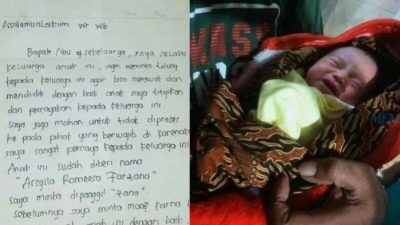 Assalamualaikum Wr Wb
Bapak/Ibu sekeluarga, saya selaku
keluarga anak ini, ingin meminta tolong
kepada keluarga ini agar bisa merawat dan
mendidik dengan baik anak saya titipkan
dan percayakan kepada keluarga ini.
saya juga mohon untuk tidak diproses
ke pada pihak yang berwajib di karenakan
saya sangat percaya kepada keluarga ini
Anak ini sudah diberi nama
"Arsyila Romeesa Farzana"
saya minta dipanggil "zana".
sebelumnya saya minta maaf karna
anak ini dengan baik
WAS